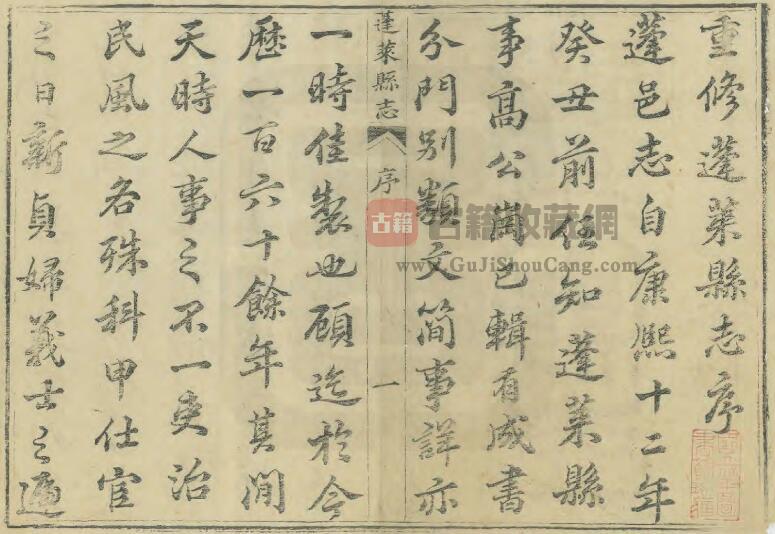 重修蓬萊縣志序
蓬邑志自康熙十二年
癸丑前任知蓬萊縣
事高公崗已輯有成書
分門別類文簡事詳亦
蓬萊縣志
序
一
一時佳製也顧迄於今
歷一百六十餘年其間
天時人事之不一吏治
民風之各殊科甲仕宦
之日新貞婦義士之
古籍
古籍收藏網
www.GuJiShouCang.com